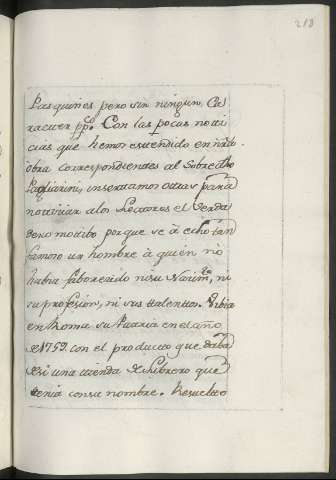 213
Pasquines pero sin ningun Ca
racter ppco. Con las pocas noti
cias que hemos estendido en nrâ
obra correspondientes al Sobredho
Pagliarini, insertamos otras para
noticiar a los Lectores el verda
dero motibo porque se à echo tan
famoso un hombre à quien no
habia faborecido ni su Nacimto, ni
su profesion, ni sus talentos. Vibia
en Roma su Patria en el año
de 1759. con el producto que daba
de si una tienda de Librero que
tenia con su nombre. Resuelto